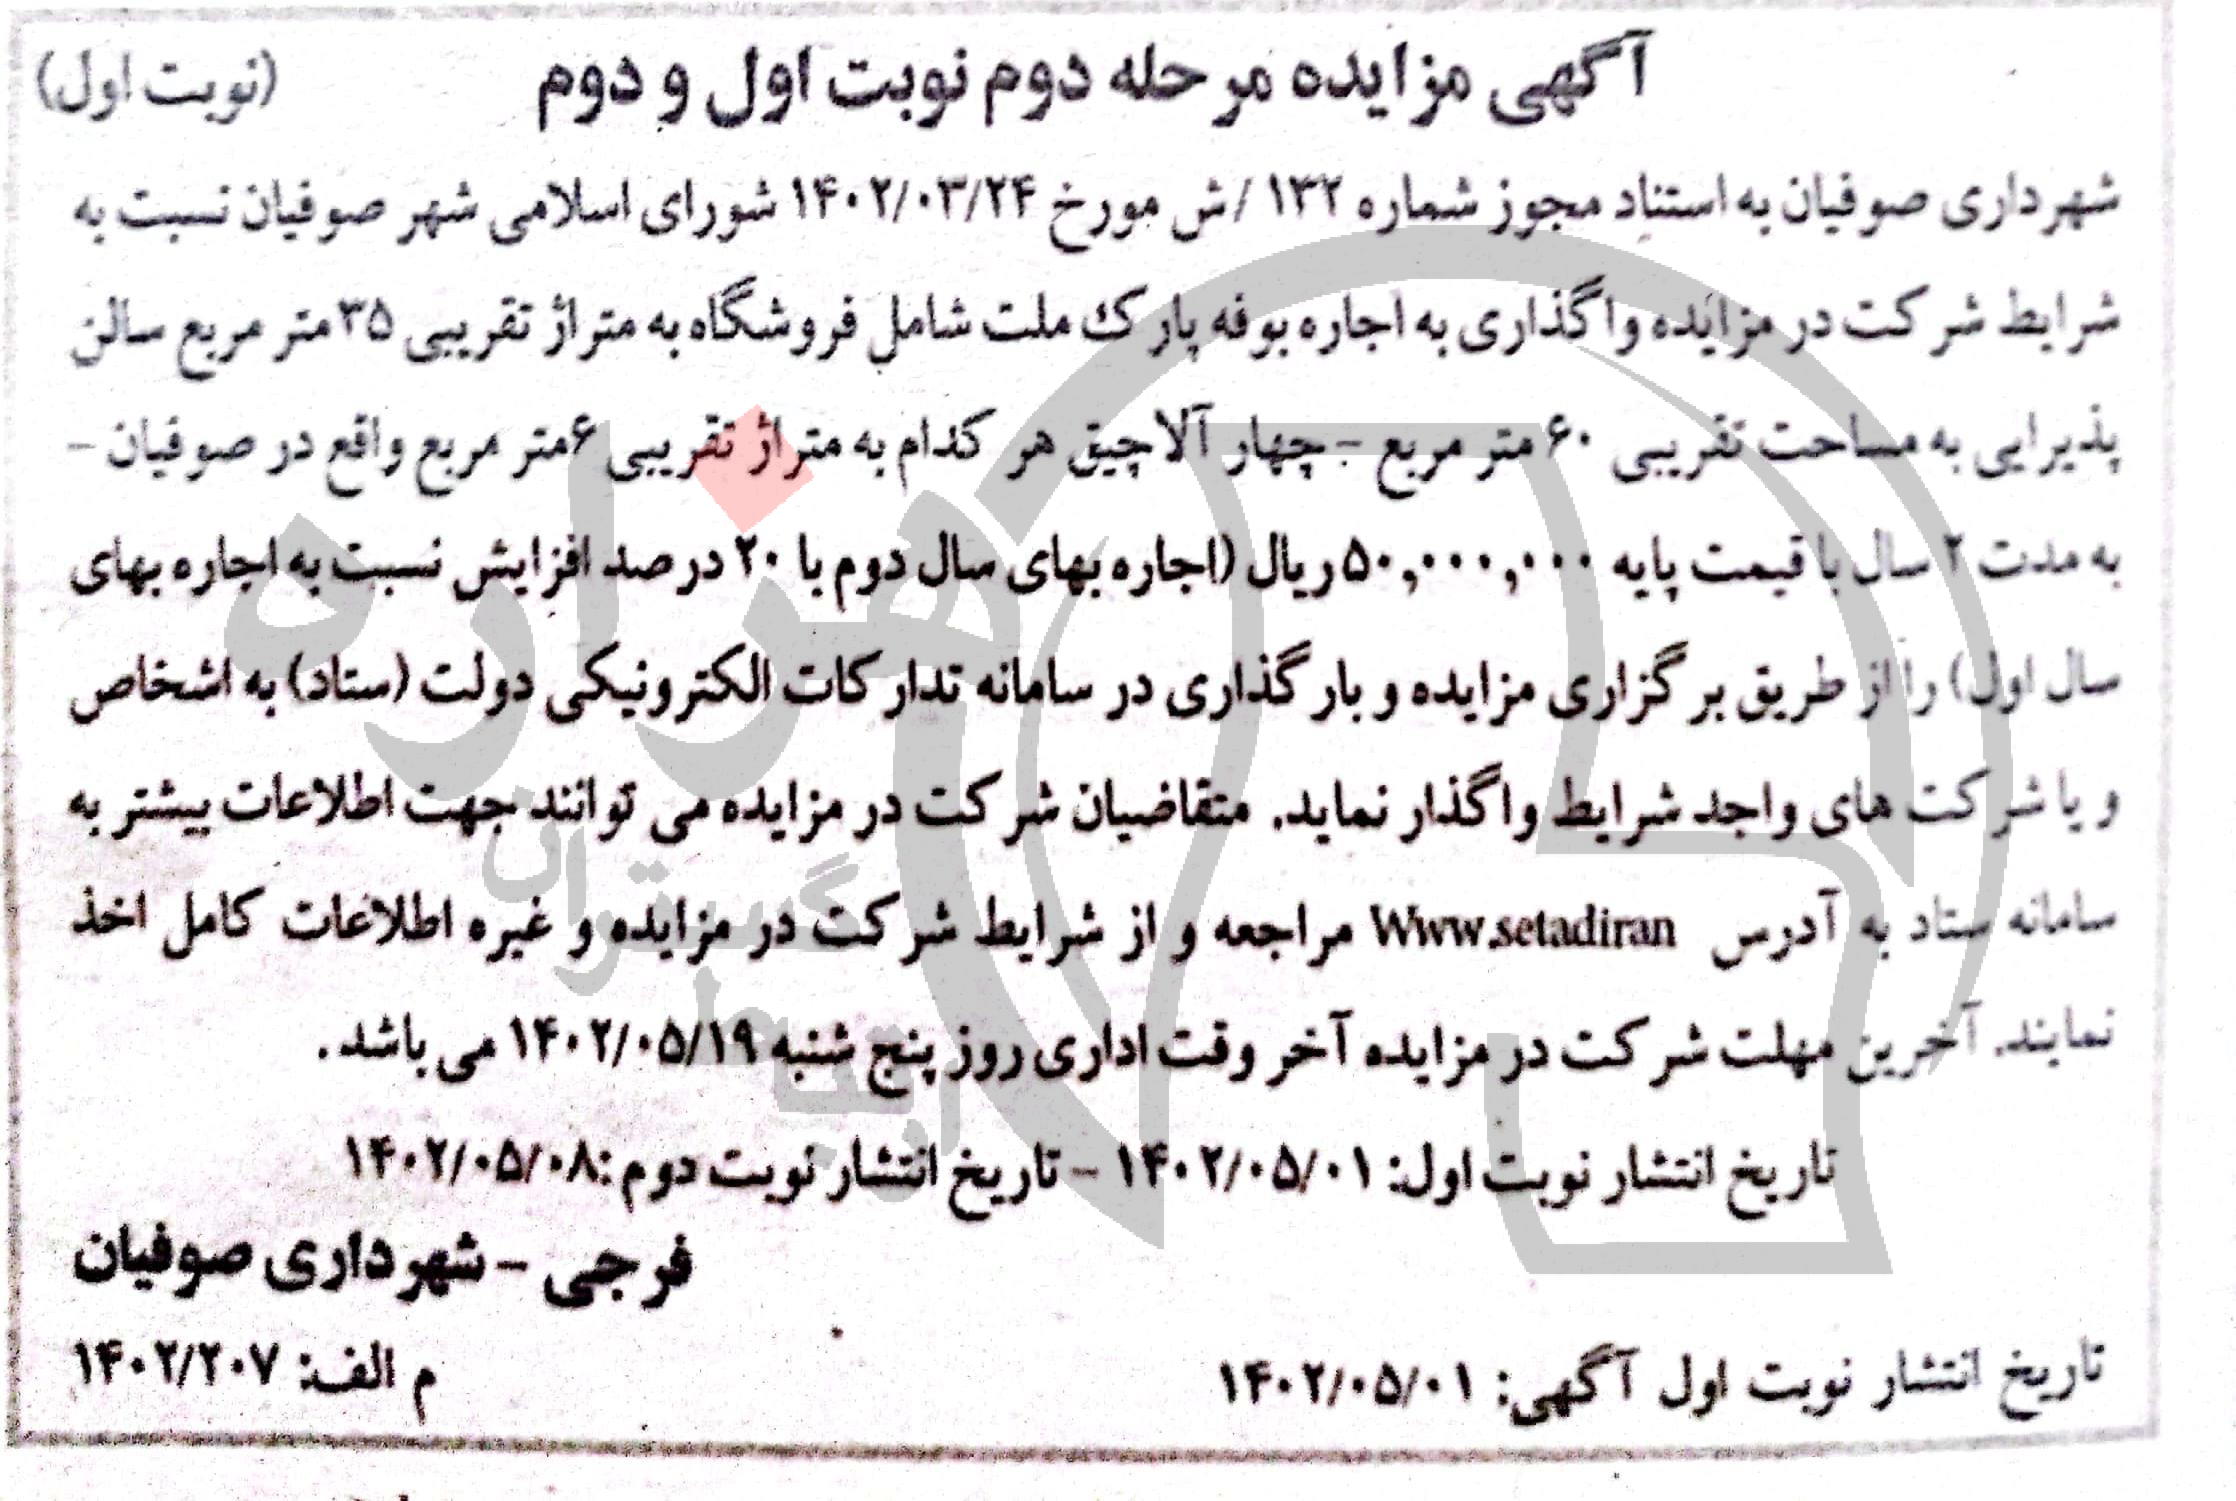 آگهی مزایده مرحله دوم نوبت اول و دوم (نوبت اول)
شهرداری صوفیان به استناد مجوز شماره ۱۳۲ /ش مورخ ۱۴۰۲/۰۳/۲۴ شورای اسلامی شهر صوفیان نسبت به
شرایط شرکت در مزایده واگذاری به اجاره بوفه پارک ملت شامل فروشگاه به متراژ تقریبی ۳۵ متر مربع سالن
پذیرایی به مساحت تقریبی ۶۰ متر مربع - چهار آلاچیق هر کدام به متراژ تقریبی ۶متر مربع واقع در صوفیان -
به مدت ۲ سال با قیمت پایه ۵۰,۰۰۰,۰۰۰ ریال (اجاره بهای سال دوم با ۲۰ درصد افزایش نسبت به اجاره بهای
سال اول) را از طریق برگزاری مزایده و بارگذاری در سامانه تدارکات الکترونیکی دولت (ستاد) به اشخاص
و یا شرکت های واجد شرایط واگذار نماید. متقاضیان شرکت در مزایده می توانند جهت اطلاعات بیشتر به
سامانه ستاد به آدرس Www.setadiran مراجعه و از شرایط شرکت در مزایده و غیره اطلاعات کامل اخذ
نمایند. آخرین مهلت شرکت در مزایده آخر وقت اداری روز پنج شنبه ۱۴۰۲/۰۵/۱۹ می باشد.
تاریخ انتشار نوبت اول: ۱۴۰۲/۰۵/۰۱ - تاریخ انتشار نوبت دوم:۱۴۰۲/۰۵/۰۸
فرجی - شهرداری صوفیان
تاریخ انتشار نوبت اول آگهی: ۱۴۰۲/۰۵/۰۱ م الف: ۱۴۰۲/۲۰۷
هزاره